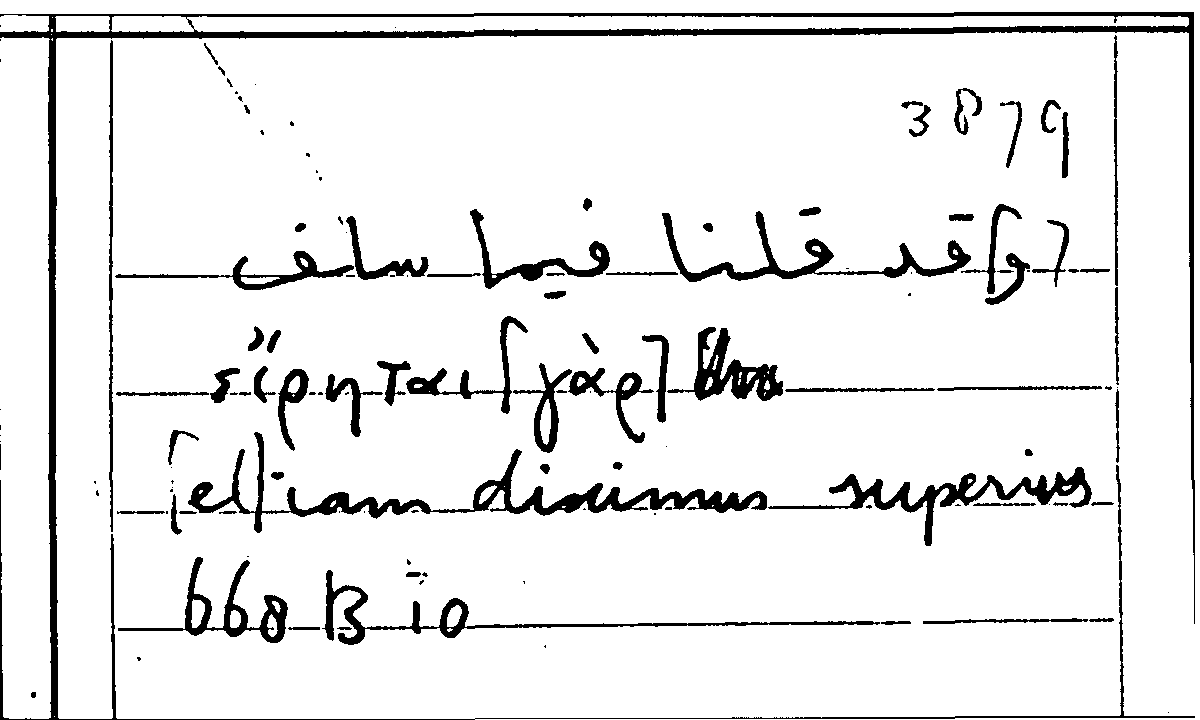 3879
[و] قد قلنا فيما سلف
εἴρηται [γὰρ]
[et] iam diximus superius
668 B 10